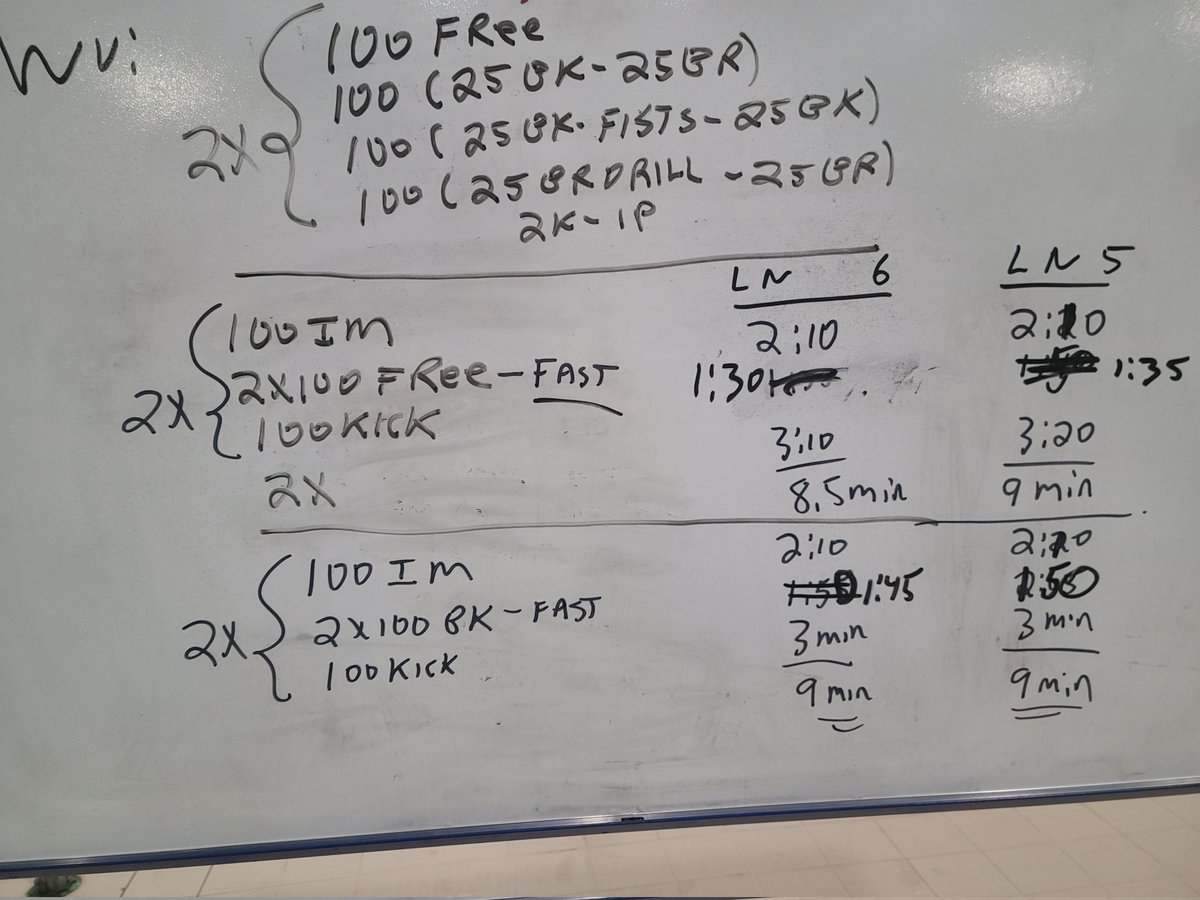 WU:
2X
100 FRee
100 (25 BK-25BR)
100 (25 BK-FISTS-25BK)
100 (25 BRDRILL-25BR)
2K-1P
LN 6 LN 5
2X
100 IM 2:10
2X100 FRee-FAST 1:30 1:35
100 KICK 3:10 3:20
2X 8.5min 9 min
2X
100 IM 2:10
2X100 BK-FAST 1:45 1:50
100 KICK 3 min 3 min
9 min 9 min